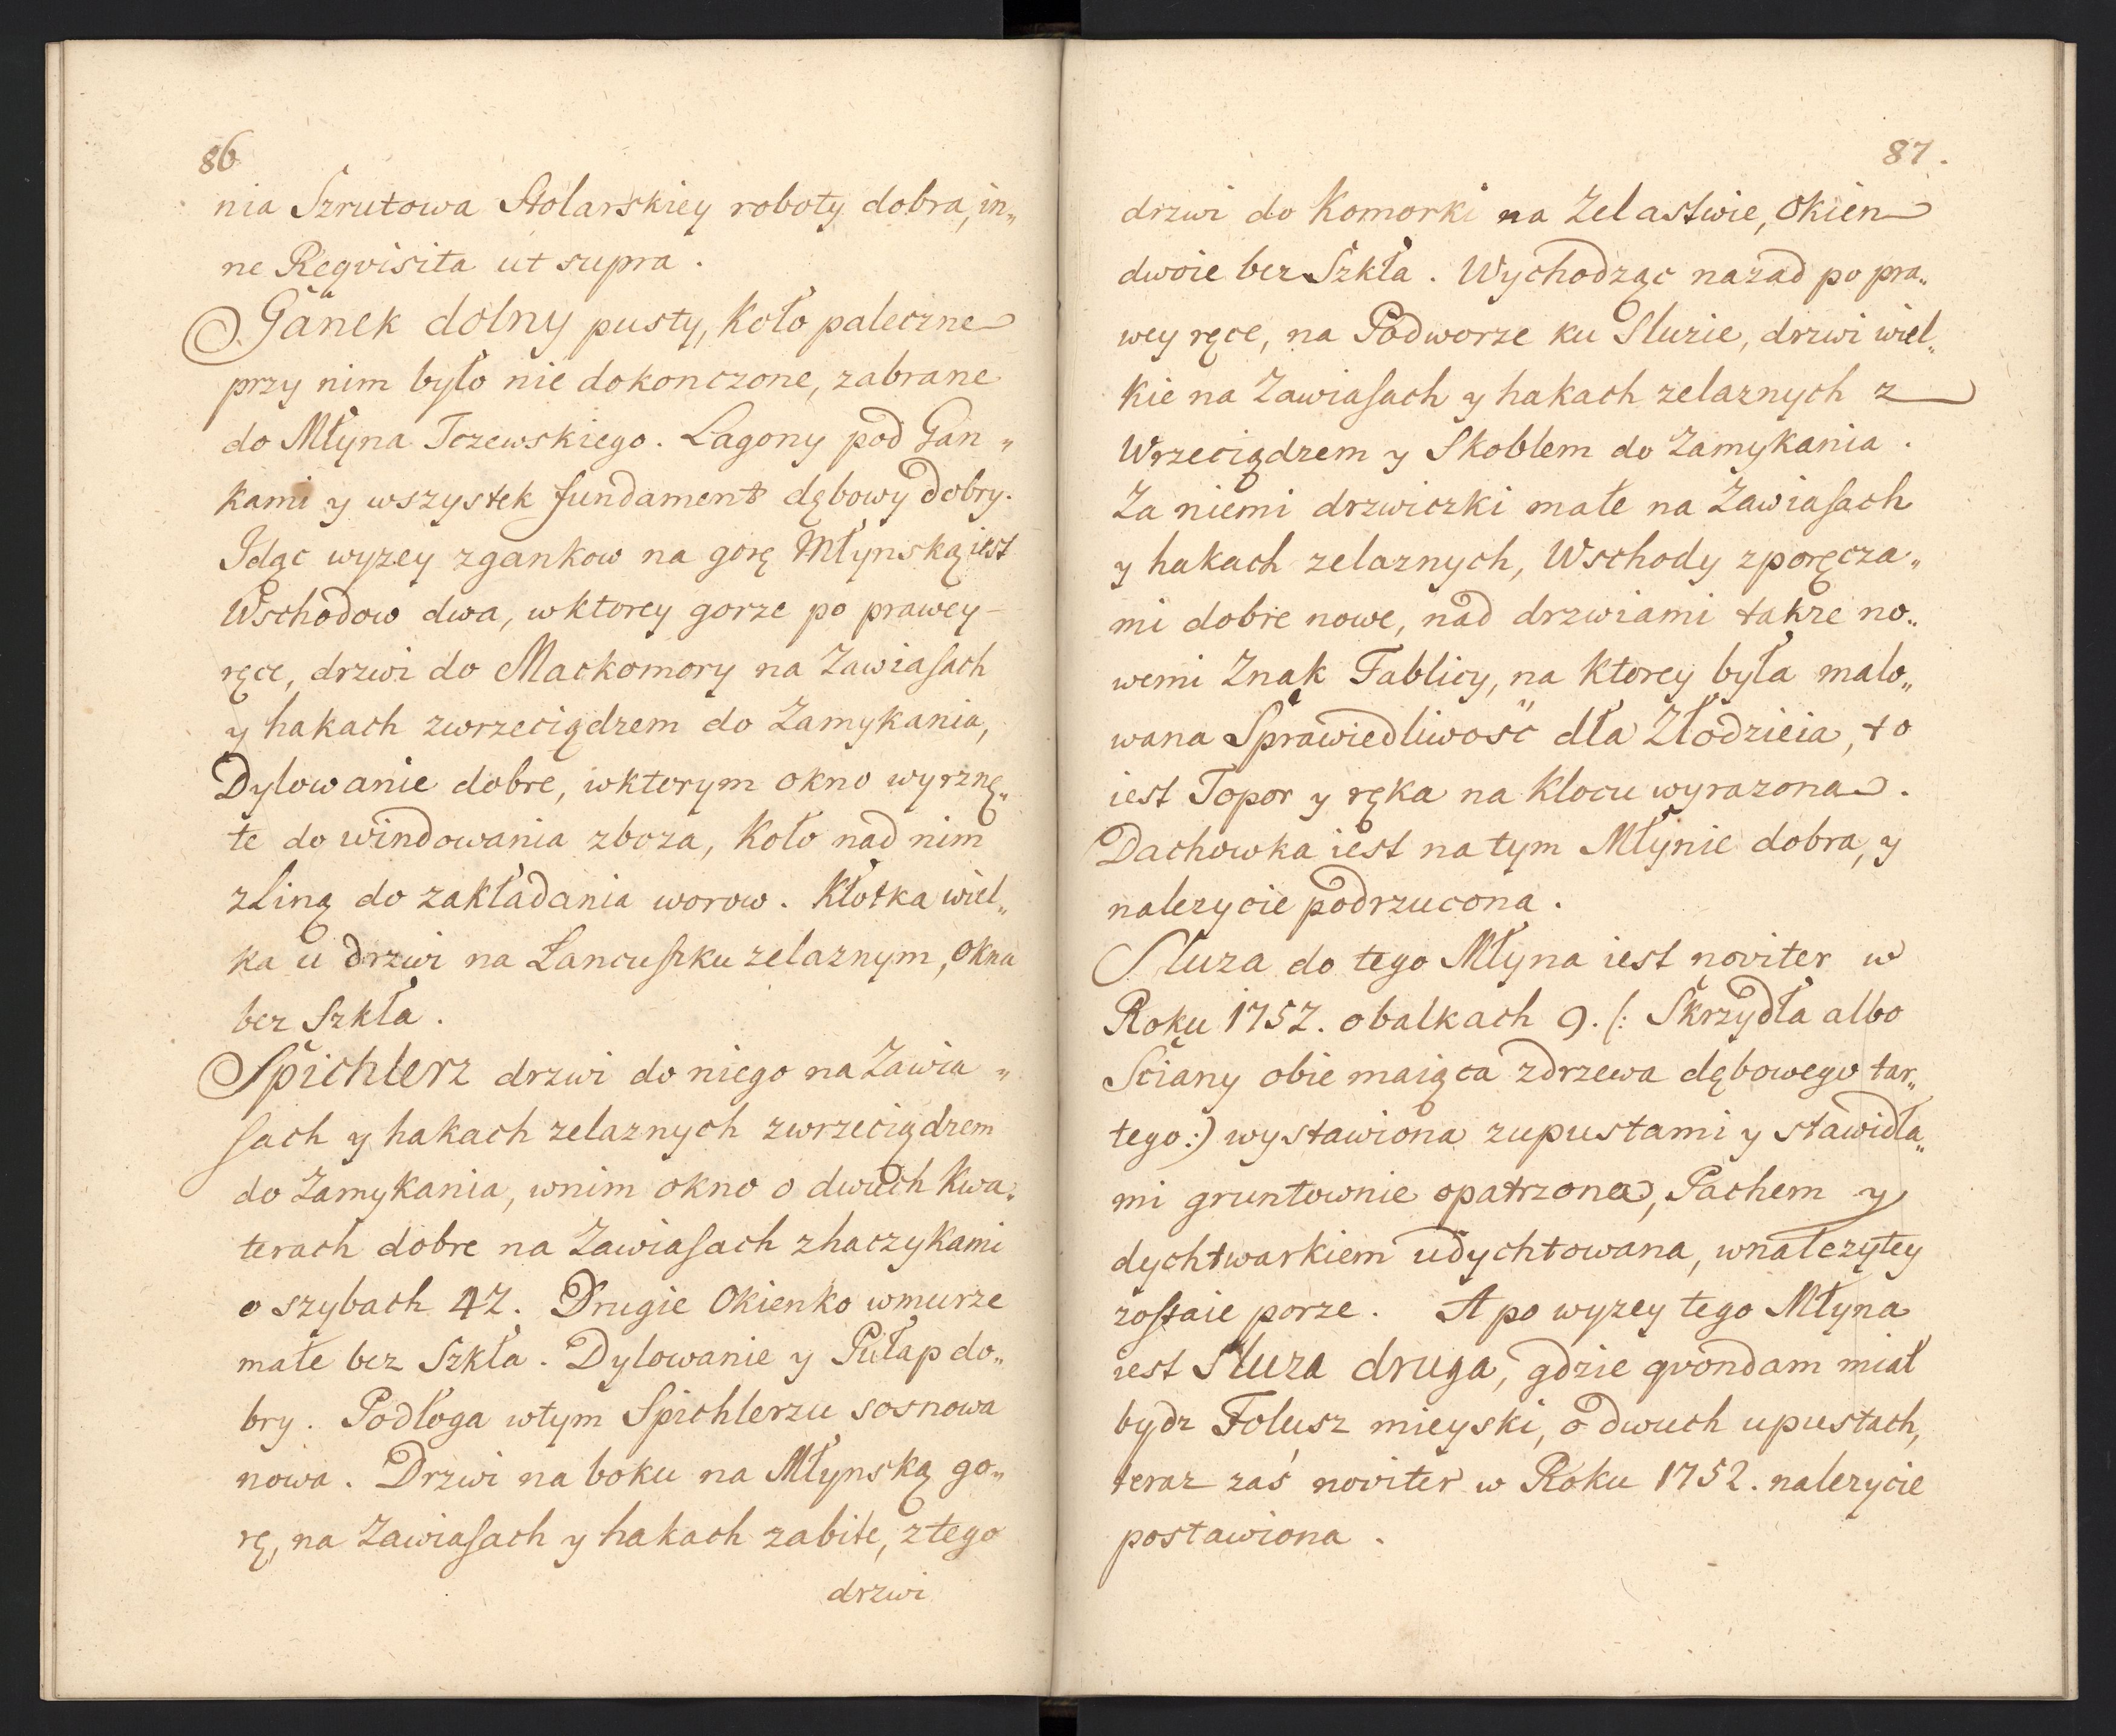 86
nia Szrutowa Stolarskiey roboty dobra, in„
ne Reqvisita ut supra.
Ganek dolny pusty, Koło paleczne
przy nim było nie dokonczone, zabrane
do Młyna Tczewskiego. Lagony pod Gan„
kami y wszystek fundament dębowy dobry.
Idąc wyzey z gankow na gorę Młynską iest
Wschodow dwa, w ktorey gorze po prawey
ręce, drzwi do Mackomory na Zawiasach
y hakach z wrzeciądzem do Zamykania,
Dylowanie dobre, w ktorym okno wyrznę„
te do windowania zboza, Koło nad nim
z Liną do zakładania worow. Kłotka wiel„
ka u drzwi na Łancuszku zelaznym, okna
bez Szkła.
Spichlerz drzwi do niego na Zawia„
sach y hakach zelaznych z wrzeciądzem
do Zamykania, w nim okno o dwuch Kwa„
terach dobre na Zawiasach z haczykami
o szybach 42. Drugie Okienko w murze
małe bez Szkła. Dylowanie y Pułap do„
bry. Podłoga w tym Spichlerzu sosnowa
nowa. Drzwi na boku na Młynską go„
rę, na Zawiasach y hakach zabite, z tego
drzwi
87.
drzwi do Komorki na Zelastwie, Okien
dwoie bez Szkła. Wychodząc nazad po pra„
wey ręce, na Podworze ku Sluzie, drzwi wiel„
kie na Zawiasach y hakach zelaznych z
Wrzeciądzem y Skoblem do Zamykania.
Za niemi drzwiczki małe na Zawiasach
y hakach zelaznych, Wschody z poręcza„
mi dobre nowe, nad drzwiami takze no„
wemi Znak Tablicy, na Ktorey była malo„
wana Sprawiedliwość dla Złodzieia, to
iest Topor y ręka na Klocu wyrazona.
Dachowka iest na tym Młynie dobra, y
nalezycie podrzucona.
Sluza do tego Młyna iest noviter w
Roku 1752. o balkach 9. (: Skrzydła albo
Sciany obie maiąca z drzewa dębowego tar„
tego :) wystawiona z upustami y stawidła„
mi gruntownie opatrzona, Pachem y
dychtwarkiem udychtowana, w nalezytey
zostaie porze. A po wyzey tego Młyna
iest Sluza druga, gdzie qvondam miał
bydz Folusz mieyski, o dwuch upustach,
teraz zaś noviter w Roku 1752. nalezycie
postawiona.